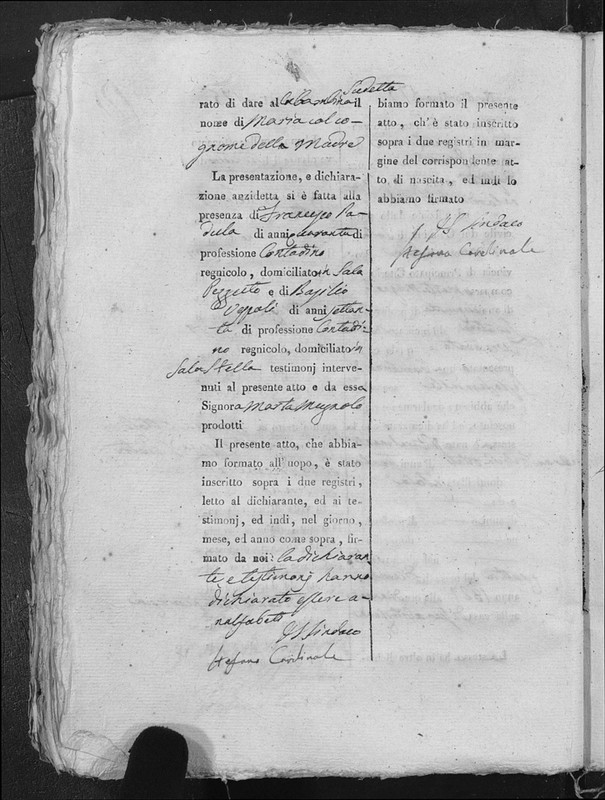 rato di dare al la bambina Sudetta il
nome di Maria col co-
gnome della Madre
La presentazione, e dichiara-
zione anzidetta si è fatta alla
presenza di Francesco Pa-
dula di anni quaranta di
professione Contadino
regnicolo, domiciliato in Sala
Pezzetto e di Basilio
di anni settan-
ta di professione Contadi-
no regnicolo, domiciliato in
Sala Stella testimonj interve-
nuti al presente atto e da essa
Signora Marta Mugnolo
prodotti
Il presente atto, che abbia-
mo formato all' uopo, è stato
inscritto sopra i due registri,
letto al dichiarante, ed ai te-
stimonj, ed indi, nel giorno,
mese, ed anno come sopra, fir-
mato da noi: la dichiaran-
te e testimonj hanno
dichiarato essere a-
nalfabeti
Il Sindaco
Stefano Cardinale
biamo formato il presente
atto, ch' è stato inscritto
sopra i due registri in mar-
gine del corrispondente at-
to di nascita, ed indi lo
abbiamo firmato
Il Sindaco
Stefano Cardinale